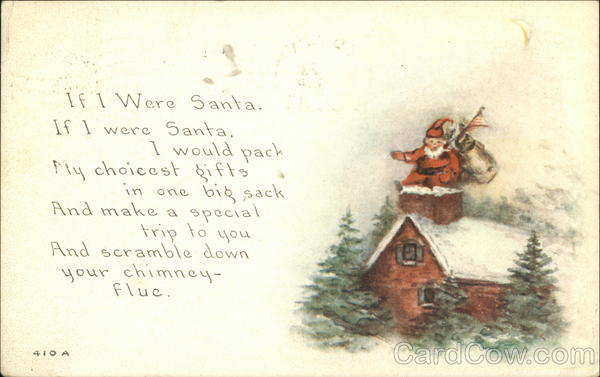 If I Were Santa.
If I were Santa,
I would pack
My choicest gifts
in one big sack
And make a special
trip to you
And scramble down
your chimney-
flue.
410 A
CardCow.com